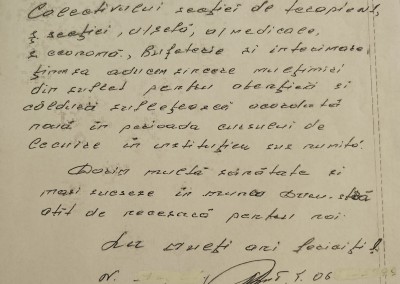 Colectivului secției de terapienț,
și secției, dietă, al medicale,
și economă, Bufeterie si infirmiere
ținem sa aducem sincere mulțimiri
din suflet pentru atenția si
căldura sufletească acordată
nouă în perioada cursului de
lecuire în instituția sus numită.
Dorim multă sănătate si
mari succese în munca Dum-stră
atît de necesară pentru noi.
La mulți ani fericiți!